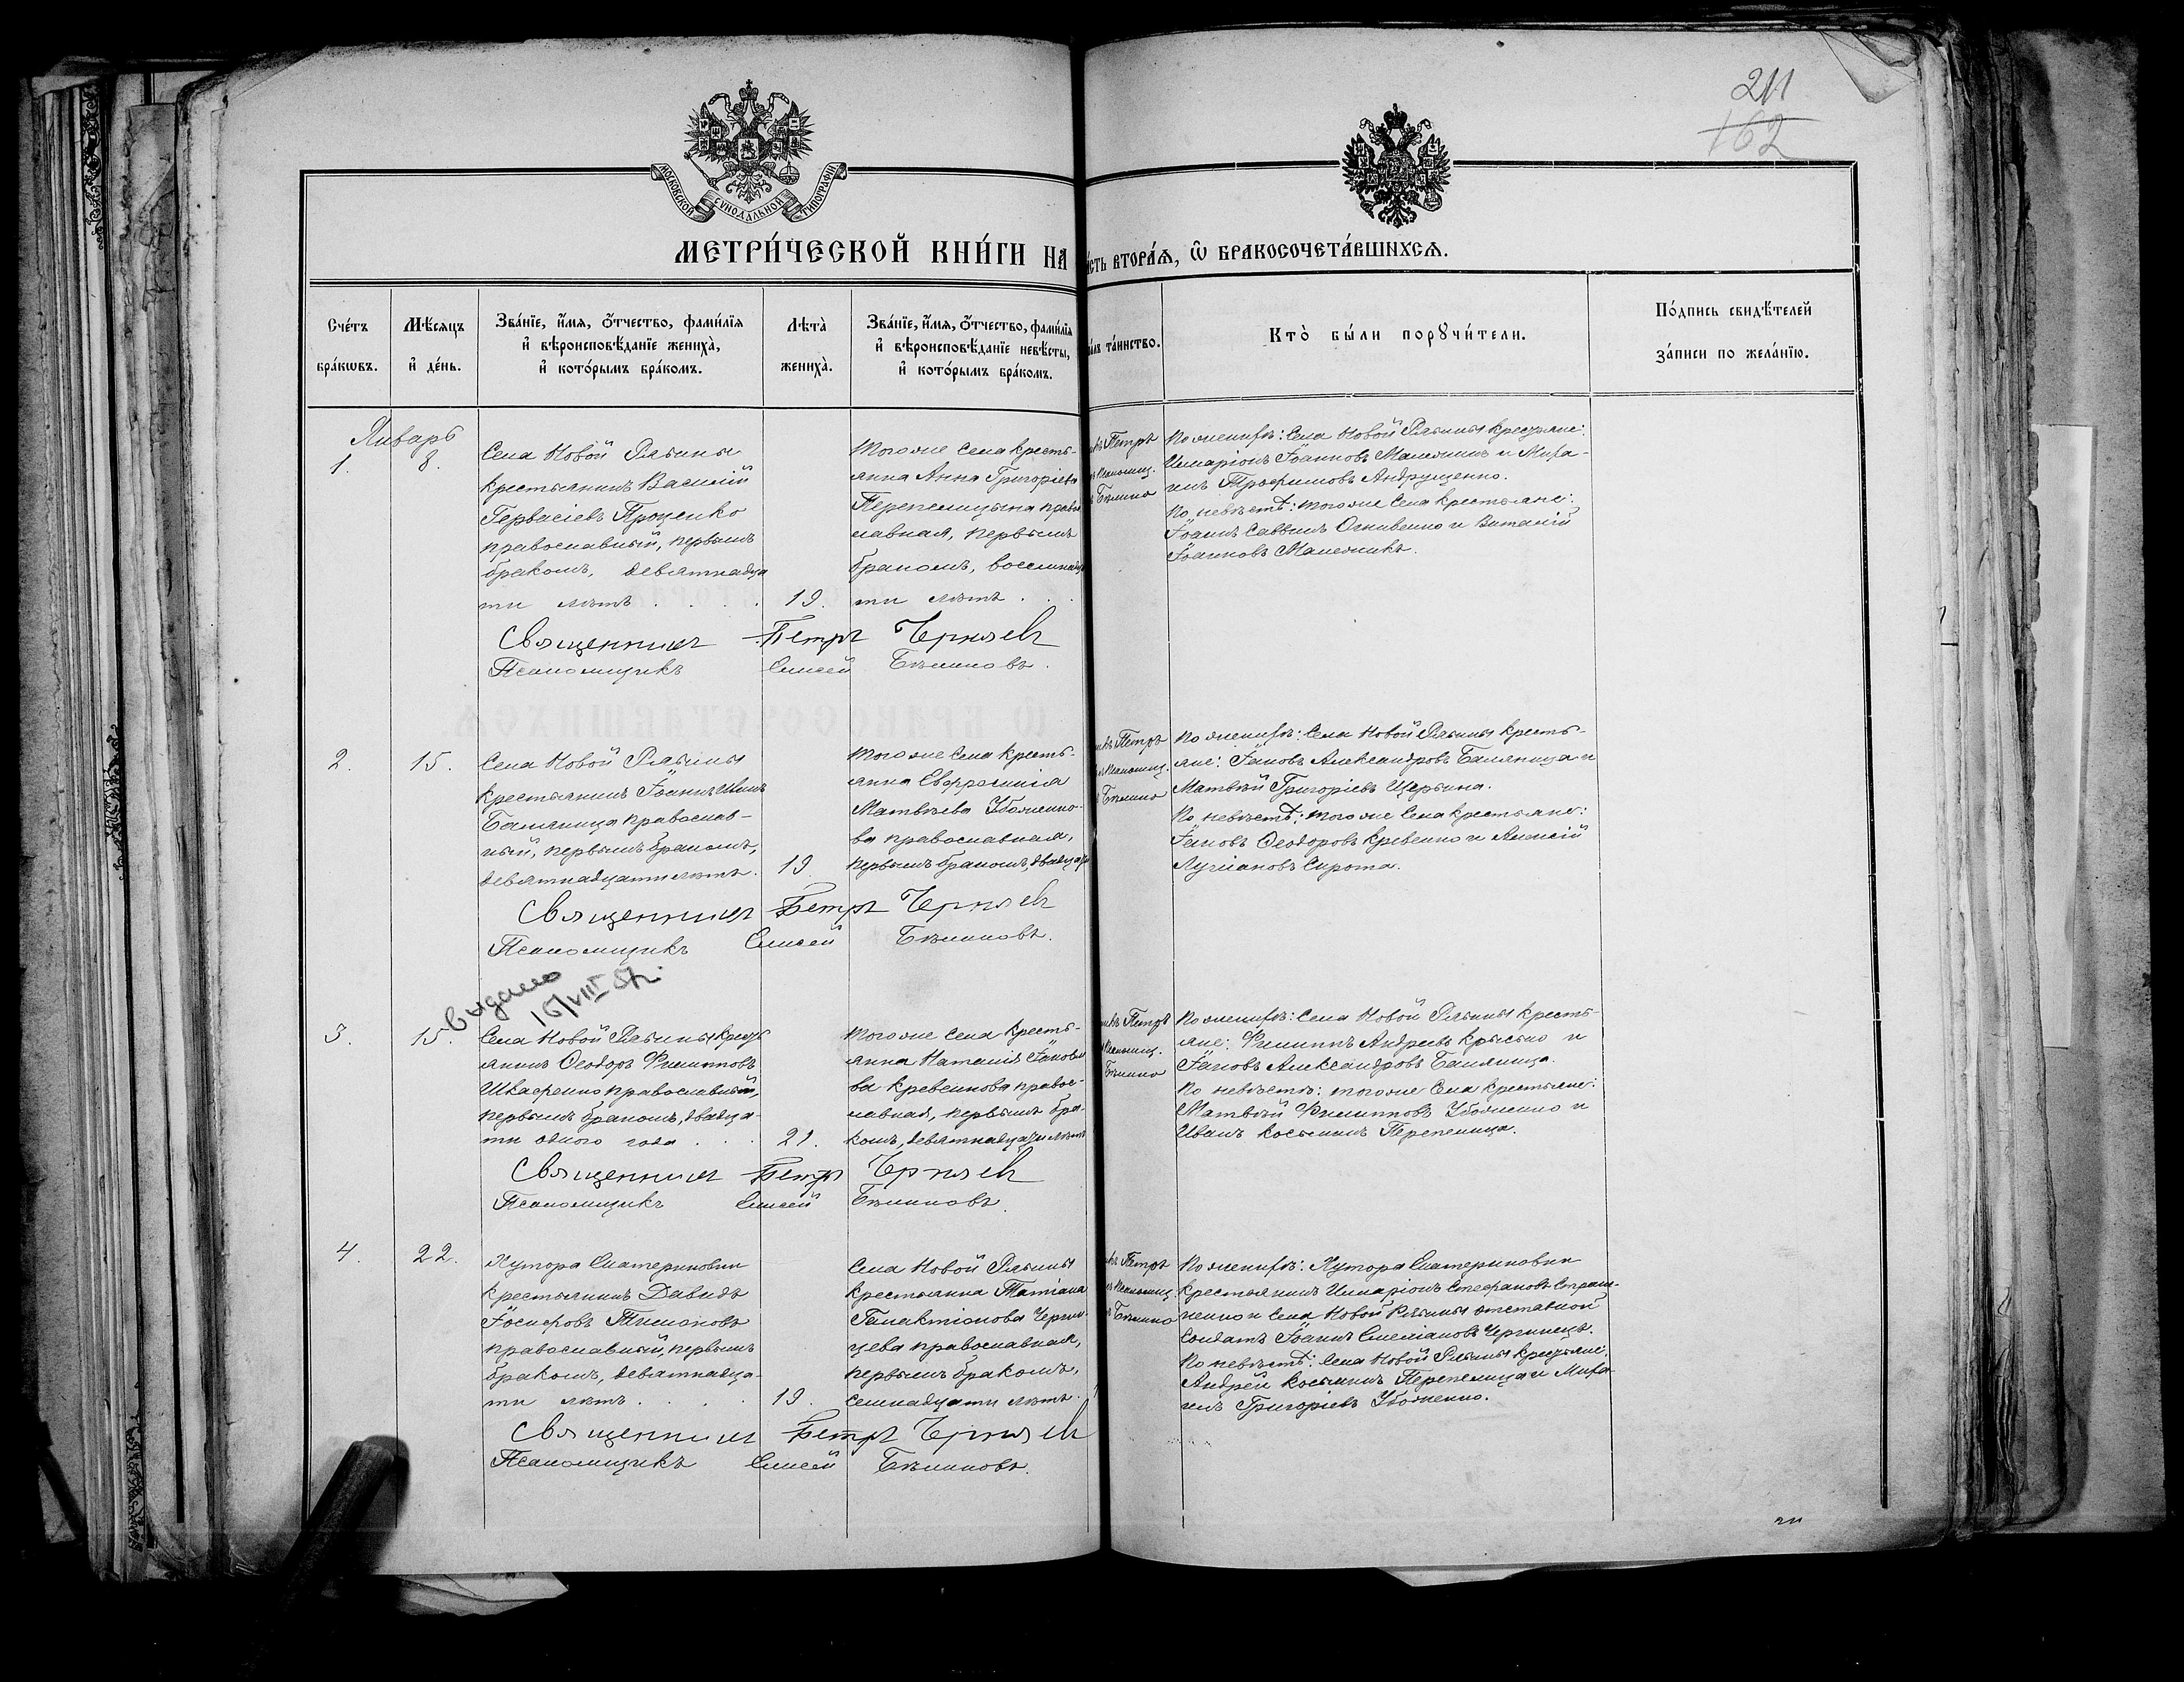 211
162
МОСКОВСКОЙ СѴНОДАЛЬНОЙ ТИПОГРАФІИ
МЕТРИ́ЧЕСКОЙ КНИ́ГИ НА
сть втора́ѧ, ѽ бракосочета́вшихсѧ.
Сче́тъ бра́кѡвъ.
Мѣ́сяцъ и҆ де́нь.
Зва́нїе, и҆́мѧ, ѻ҆́тчество, фами́лїѧ
и҆ вѣроисповѣ́данїе жениха̀,
и҆ кото́рымъ бра́комъ.
Лѣта̀ жениха̀.
Зва́нїе, и҆́мѧ, ѻ҆́тчество, фами́лїѧ
и҆ вѣроисповѣ́данїе невѣ́сты,
и҆ кото́рымъ бра́комъ.
та́инство.
Кто̀ бы́ли порꙋчи́тели.
По́дпись свидѣ́телей
за́писи по жела́нїю.
Январь
1.
8.
Села Новой Рябины
крестьянинъ Василій
Гервасіевъ Проценко
православный, первымъ
бракомъ, девятнадца
ти лѣтъ . . . .
19.
Того же села кресть-
янка Анна Григорьева
Перепелицына правос
лавная, первымъ
бракомъ, восемнадца
ти лѣтъ . . .
Петръ
Псаломщ.
Бѣлико
По женихѣ: Села Новой Рябины крестьяне:
Иларіонъ Іоанновъ Мележикъ и Миха-
илъ Трофимовъ Андрущенко.
По невѣстѣ: того же Села крестьяне:
Іоаннъ Саввинъ Огнивенко и Виталій
Іоанновъ Мележикъ.
Священникъ Петръ Черняевъ
Псаломщикъ Елисей Бѣликовъ.
2.
15.
Села Новой Рябины
крестьянинъ Іоаннъ Ивановъ
Баляница православ-
ный, первымъ бракомъ,
девятнадцати лѣтъ.
19.
Того же Села кресть-
янка Евфросинія
Матвѣева Убоженко-
ва православная,
первымъ бракомъ, двадцати
Петръ
Псаломщ.
Бѣлико
По женихѣ: Села Новой Рябины кресть-
яне: Іаковъ Александровъ Баляница и
Матвѣй Григоріевъ Щербина.
По невѣстѣ: того же Села крестьяне:
Іаковъ Ѳеодоровъ Кревенко и Алексій
Лукіановъ Сирота.
Священникъ Петръ Черняевъ
Псаломщикъ Елисей Бѣликовъ.
Выдано
16/VIII
3.
15.
Села Новой Рябины крестья
янинъ Ѳеодоръ Филипповъ
православный,
первымъ бракомъ, двадца-
ти одного года . . .
21.
Того же Села кресть-
янка Наталія Іаковле
ва Кревенкова правос-
лавная, первымъ бра-
комъ, девятнадцати лѣтъ
Петръ
Псаломщ.
Бѣлико
По женихѣ: Села Новой Рябины кресть-
яне: Филиппъ Андреевъ Крысько и
Іаковъ Александровъ Баляница.
По невѣстѣ: того же Села крестьяне:
Матвѣй Филипповъ Убоженко и
Иванъ Косьминъ Перепелица.
Священникъ Петръ Черняевъ
Псаломщикъ Елисей Бѣликовъ.
4.
22.
Хутора Екатериновки
крестьянинъ Давидъ
Іосифовъ Тимоновъ
православный, первымъ
бракомъ, девятнадца-
ти лѣтъ . . . .
19.
Села Новой Рябины
крестьянка Татіана
Галактіонова Чергин-
цева православная,
первымъ бракомъ,
семнадцати лѣтъ.
Петръ
Псаломщ.
Бѣлико
По женихѣ: Хутора Екатериновки
крестьянинъ Иларіонъ Стефановъ
и Села Новой Рябины отставной
Солдатъ Іоаннъ Емеліановъ Чергинецъ.
По невѣстѣ: Села Новой Рябины крестьяне:
Андрей Косьминъ Перепелица и Миха
илъ Григоріевъ Убоженко.
Священникъ Петръ Черняевъ
Псаломщикъ Елисей Бѣликовъ.